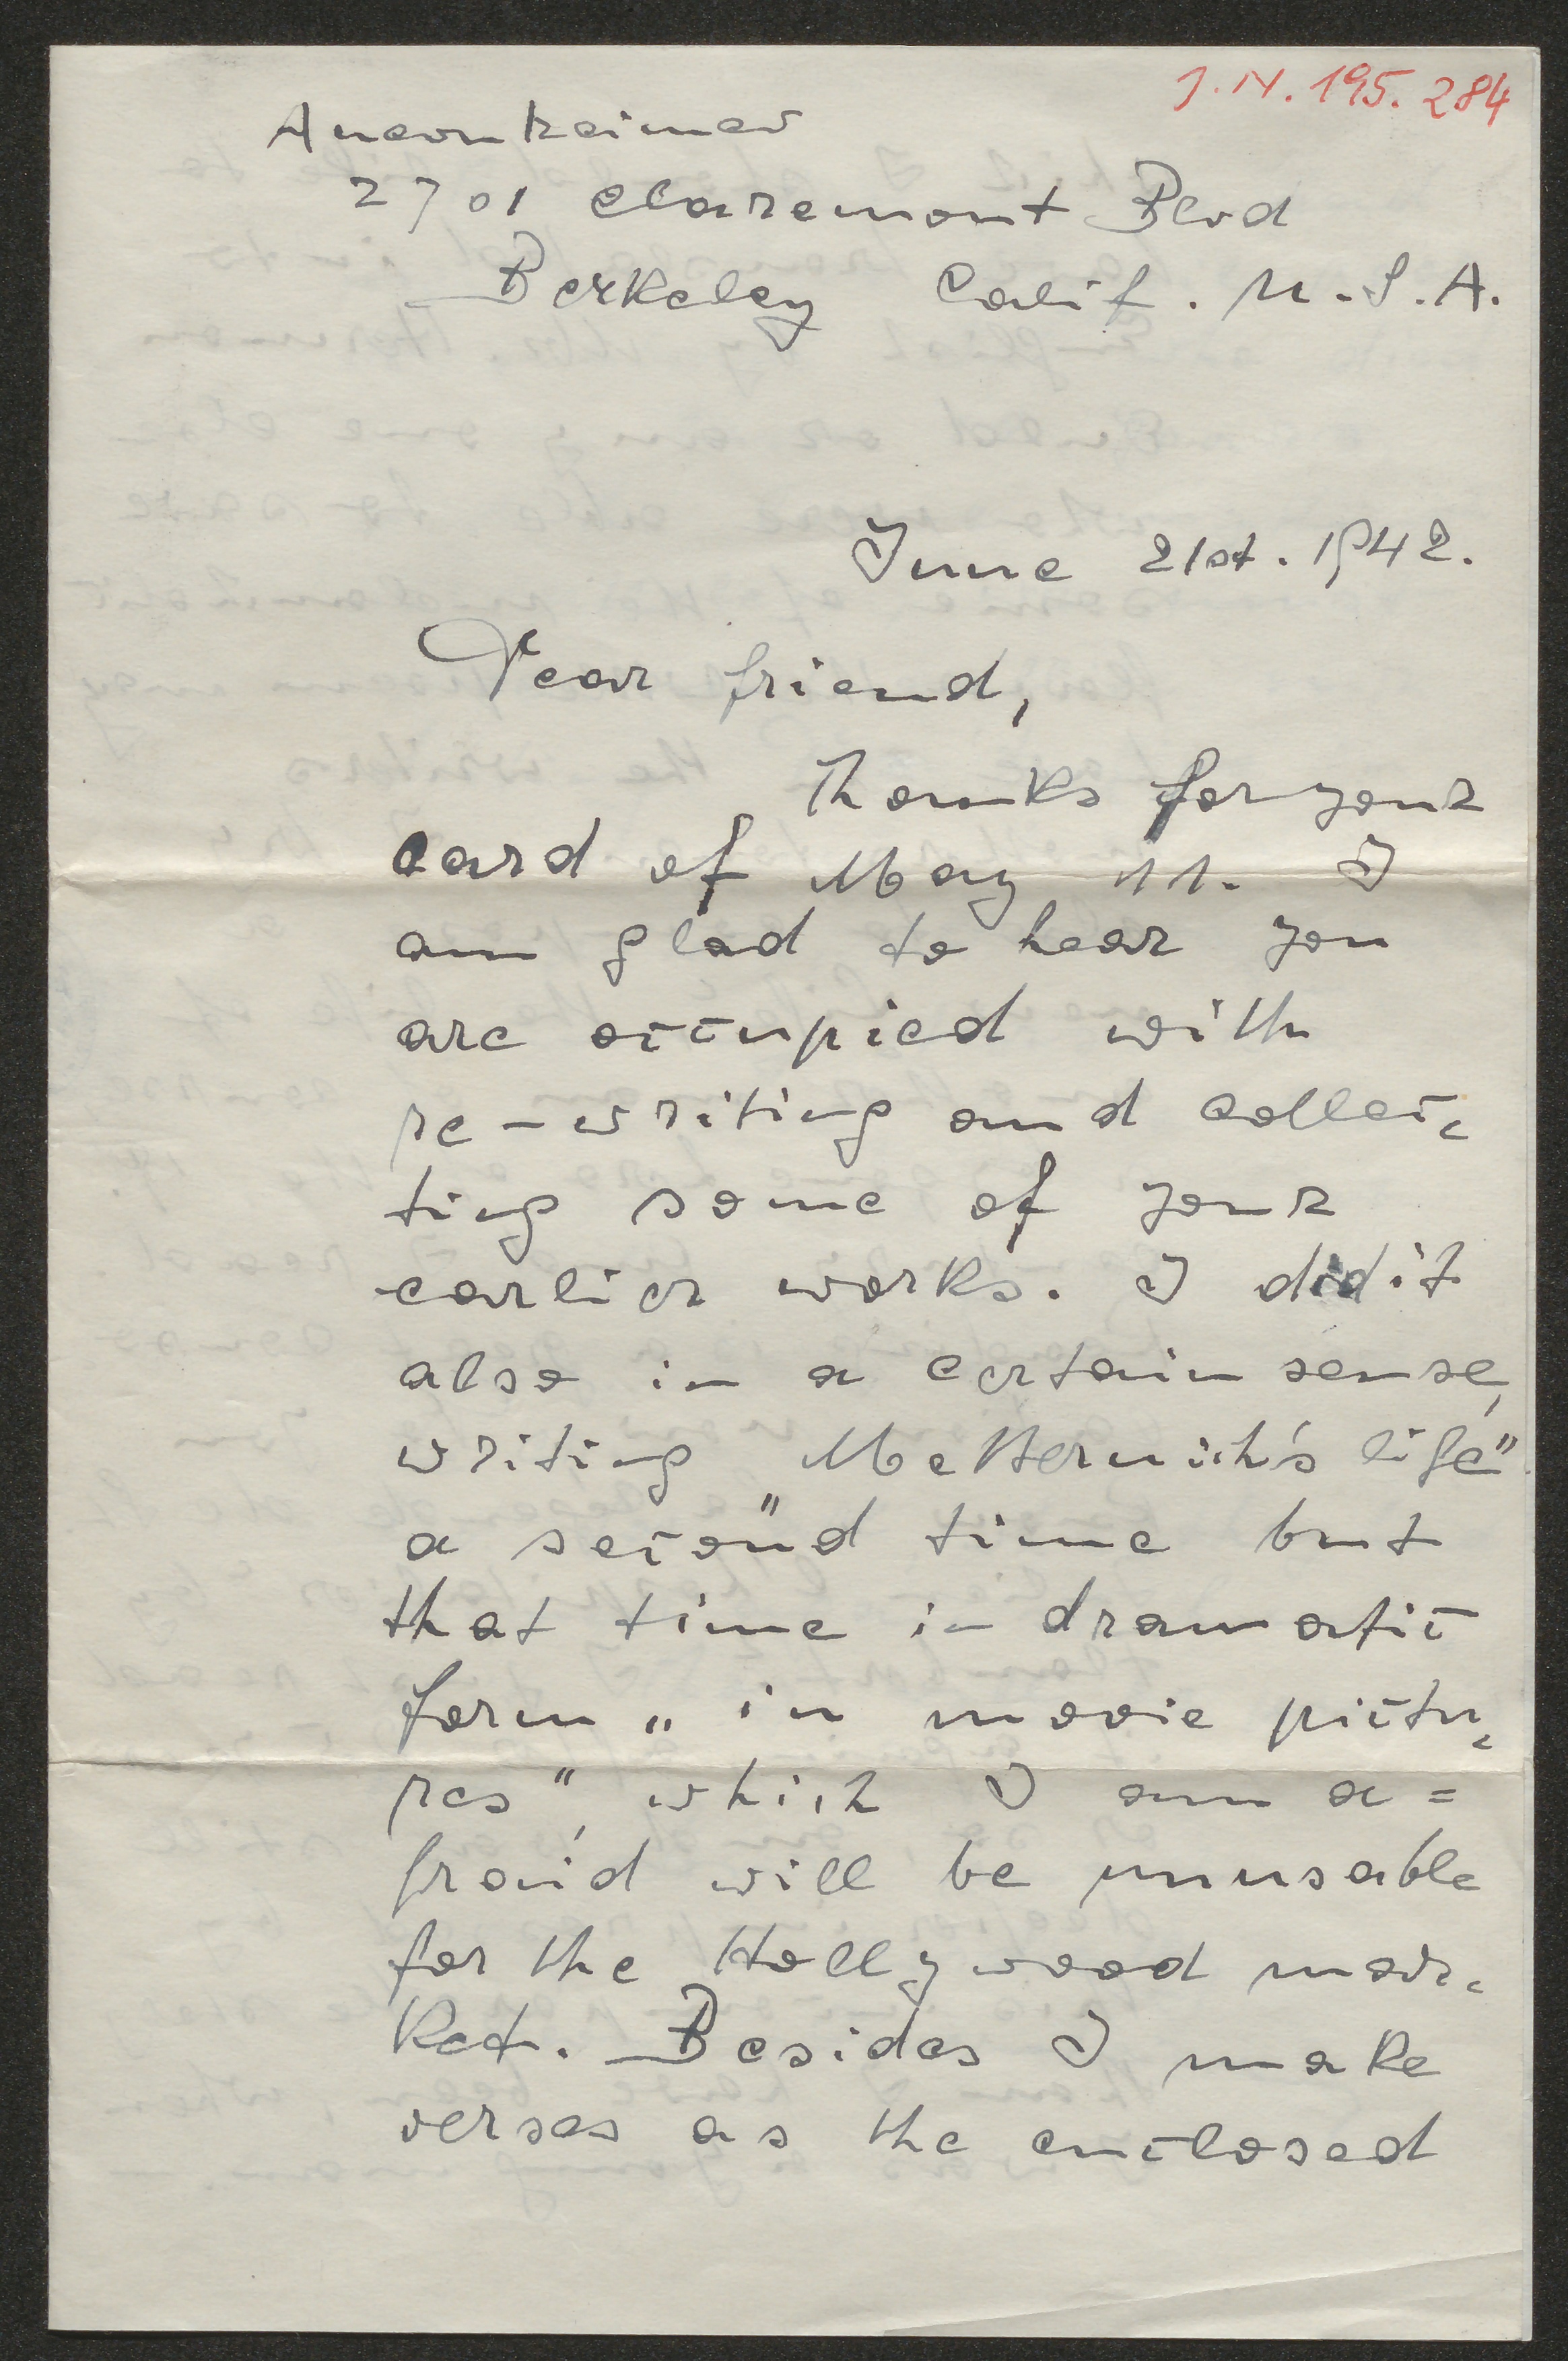 J. N. 195. 284
Auernheimer
2701 Claremont Blvd
Berkeley Calif. U.S.A.
June 21st. 1942.
Dear friend,
Thanks for your
card of May 11. I
am glad to hear you
are occupied with
re-writing and collec-
ting some of your
earlier works. I did it
also in a certain sense,
writing "Metternich's life"
a second time but
that time in dramatic
form „in movie pictu-
res", which I am a=
fraid will be unusable
for the Hollywood mar-
ket. Besides I make
verses as the enclosed